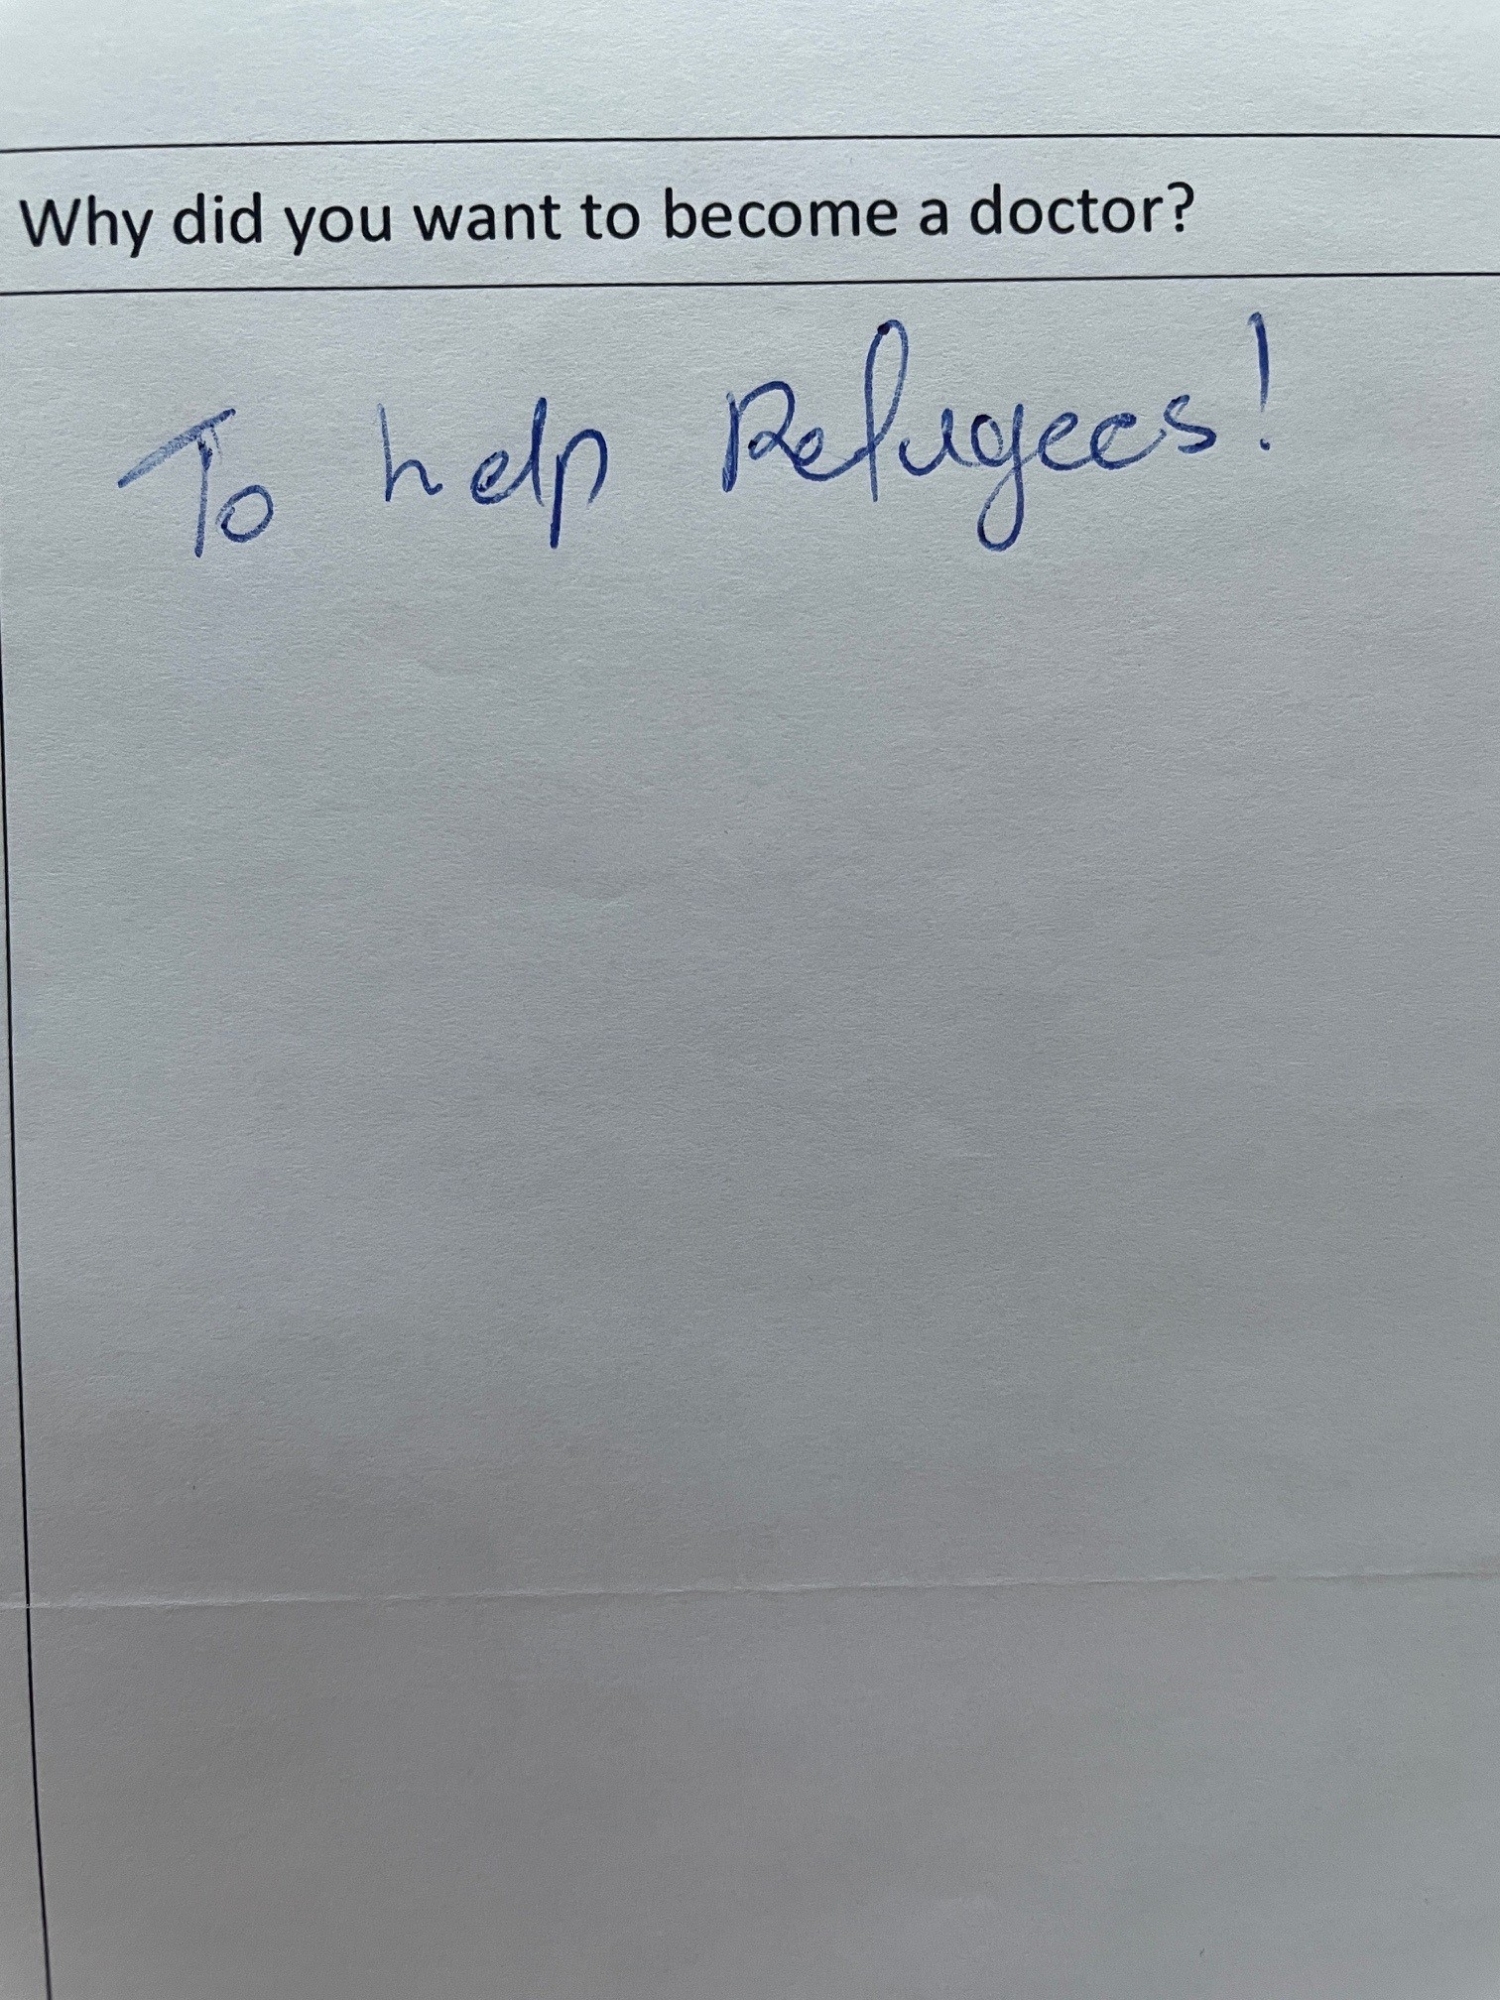 Why did you want to become a doctor?
To help Refugees!